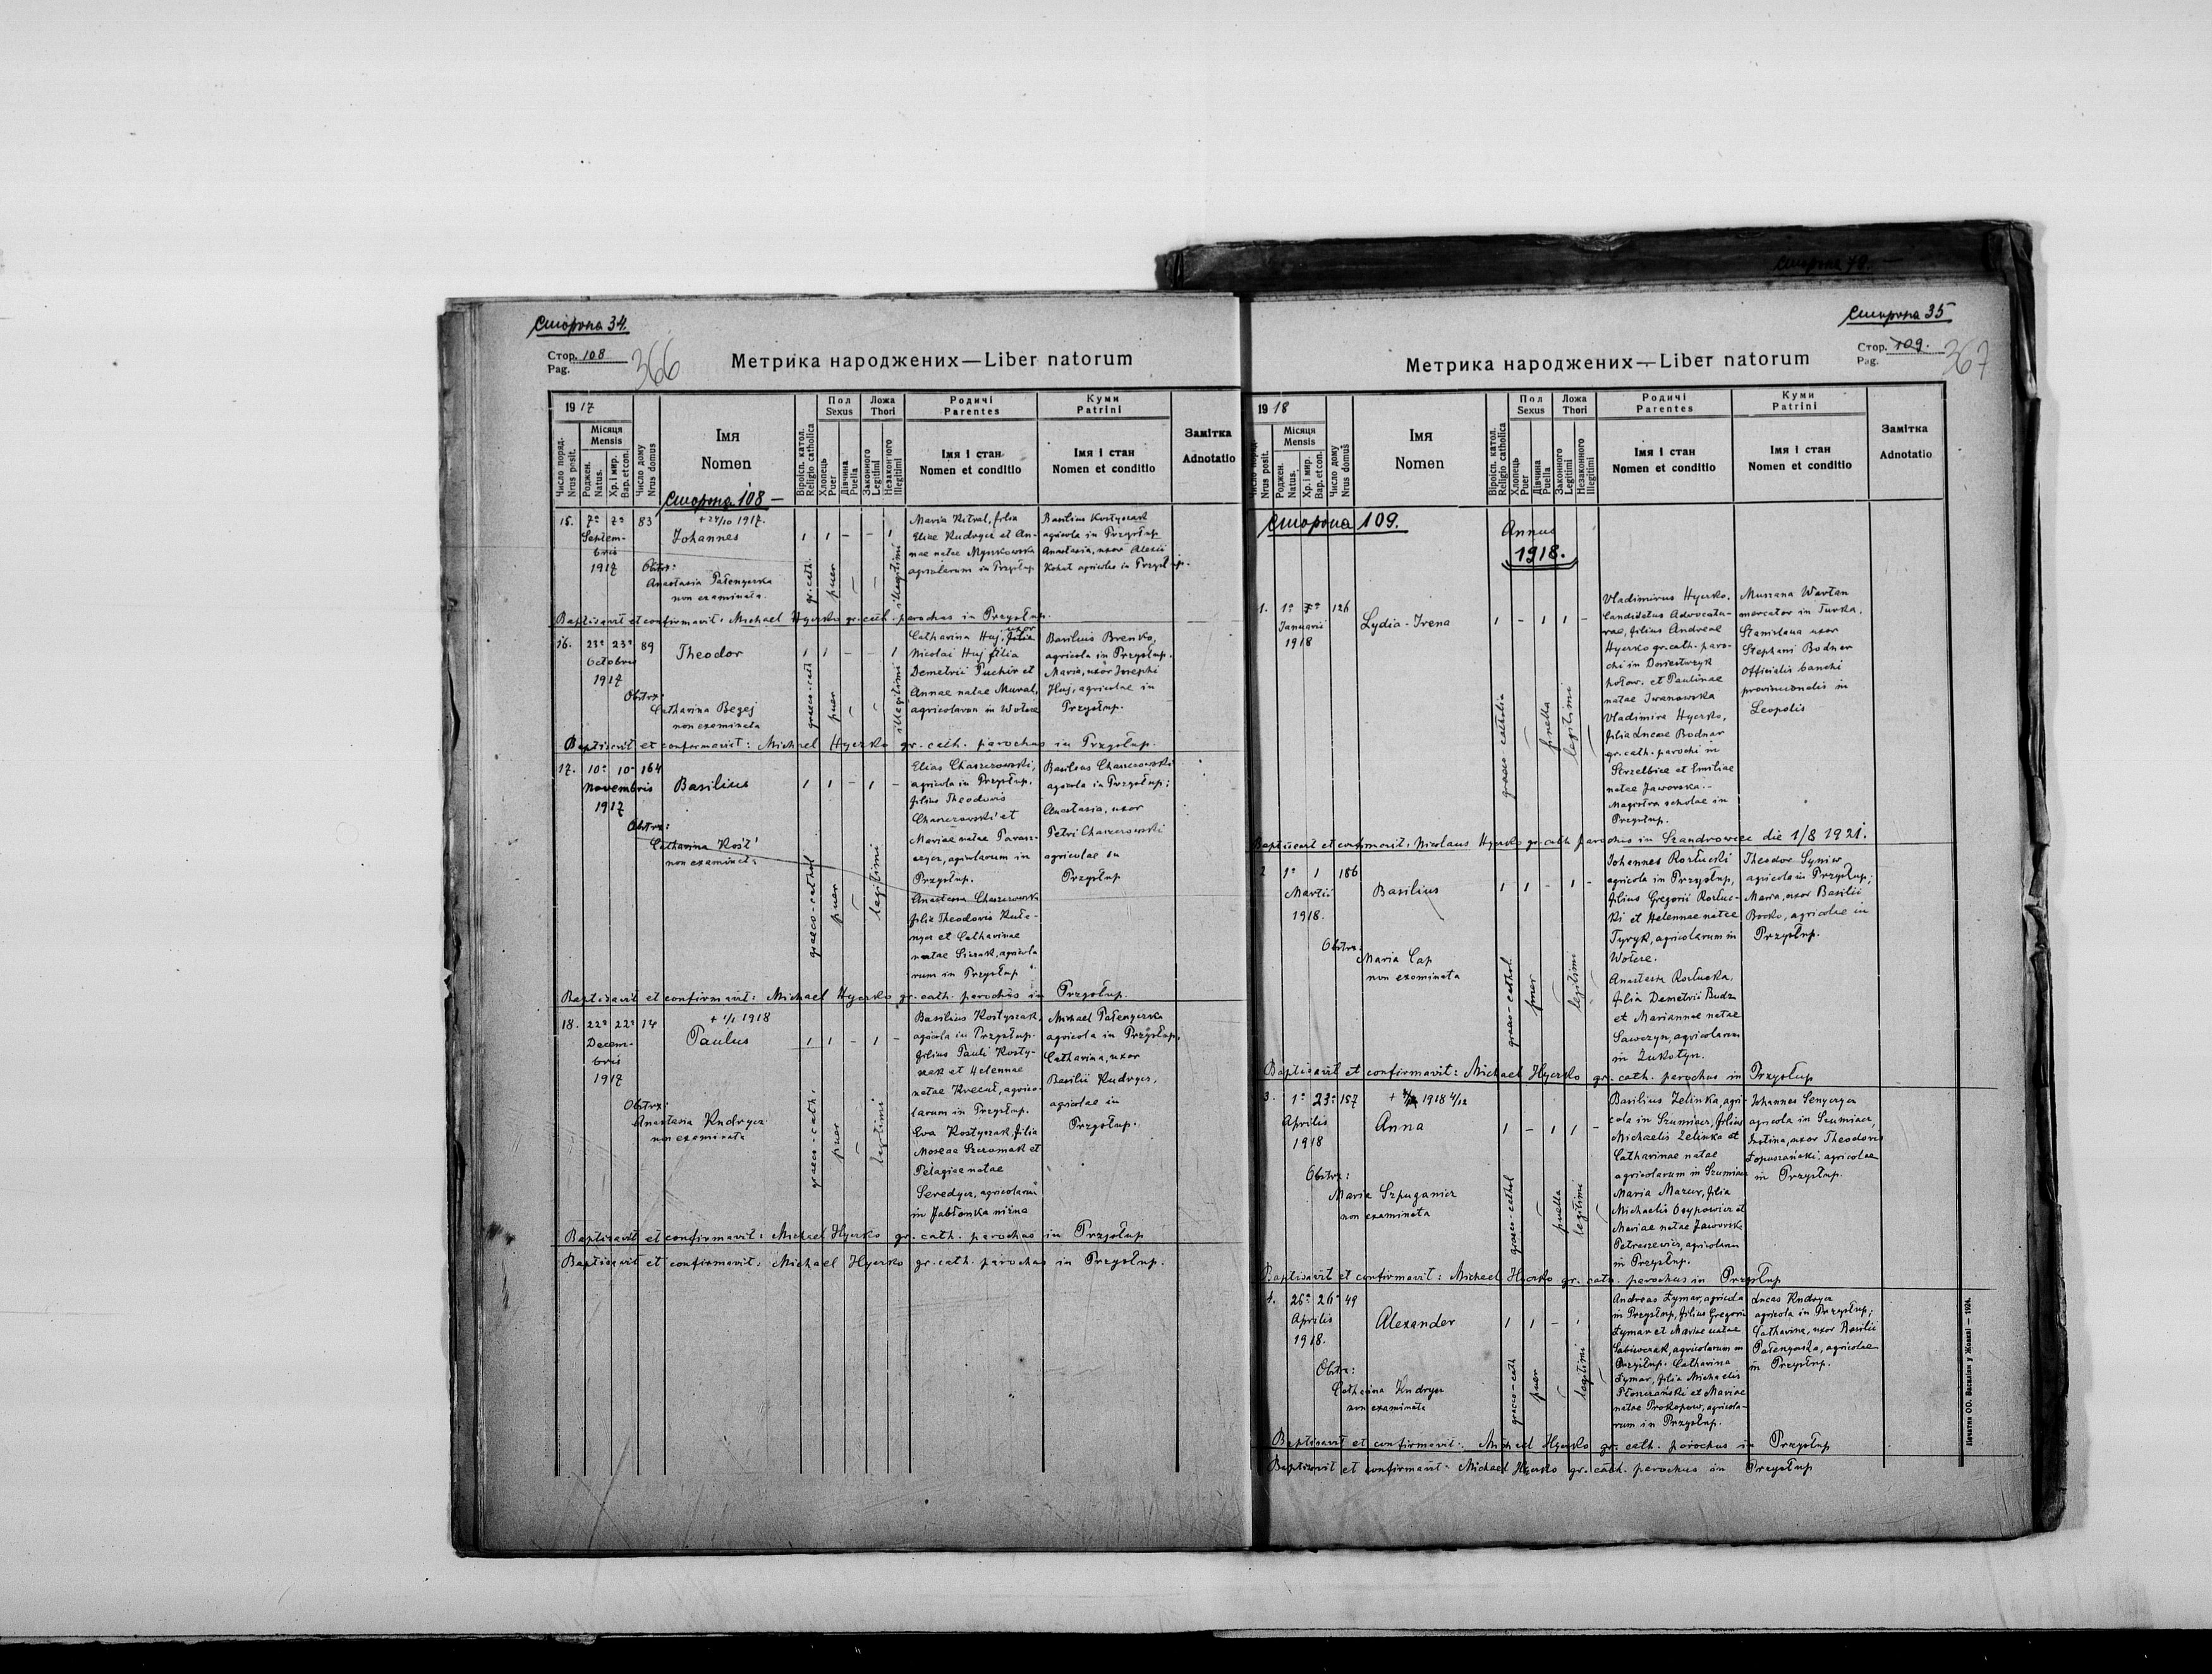 Сторона 34.
Стор. 108
Pag.
366
Метрика народжених—Liber natorum
1917
Число поряд.
Nrus posit.
Місяця
Mensis
Роджен.
Natus.
Хр. і мир.
Bap. et con.
Число дому
Nrus domus
Імя
Nomen
Сторона 108 —
Віроісп. катол.
Religio catholica
Пол
Sexus
Хлопець
Puer
Дівчина
Puella
Ложа
Thori
Законного
Legitimi
Незаконного
Illegitimi
Родичі
Parentes
Імя і стан
Nomen et conditio
Куми
Patrini
Імя і стан
Nomen et conditio
Замітка
Adnotatio
15. 7ª 7ª 83
Septem-
bris
1917
+ 24/10 1917.
Johannes
Obstr:
Anastasia Pałengerka
non examinata.
gr. cath.
puer
illegitimi
Maria Kitral, filia
Eliae Kudryer et An-
nae natae Mynkowska
agricolarum in Przysłup
Basilius Kostyszak
agricola in Przysłup
Anastasia, uxor Alexii
Kohut agricolae in Przysłup.
Baptisavit et confirmavit: Michael Hyerko gr. cath. parochus in Przysłup.
16. 23ª 23ª 89
Octobris
1917
Theodor
Obstrx:
Catharina Begej
non examinata
graeco-cath
puer
illegitimi
Catharina Huj, uxor
Nicolai Huj filia
Demetrii Puchir et
Annae natae Mural,
agricolarum in Wołcze
Basilius Brenko,
agricola in Przysłup.
Maria, uxor Josephi
Huj, agricolae in
Przysłup.
Baptisavit et confirmavit: Michael Hyerko gr. cath. parochus in Przysłup.
17. 10ª 10ª 164
Novembris
1917
Basilius
Obstrx:
Catharina Kość
non examinata
graeco-cathol
puer
legitimi
Elias Chaszczowski,
agricola in Przysłup,
filius Theodoris
Chaszczowski et
Mariae natae Parasz-
czyez, agricolarum in
Przysłup.
Anastasia Chaszczowska
filia Theodoris Pałe-
nger et Catharinae
natae Siszak, agricola
rum in Przysłup
Basilius Chaszczowski
agricola in Przysłup;
Anastasia, uxor
Petri Chaszczowski
agricolae in
Przysłup
Baptisavit et confirmavit: Michael Hyerko gr. cath. parochus in Przysłup.
18. 22ª 22ª 14
Decem-
bris
1917
+ 1/1 1918
Paulus
Obstrx:
Anastasia Kudryez
non examinata
graeco-cath.
puer
legitimi
Basilius Kostyszak,
agricola in Przysłup.
filius Pauli Kosty-
szak et Helennae
natae Kreczt, agrico-
larum in Przysłup.
Eva Kostyszak, filia
Moseae Szuomak et
Pelagiae natae
Seredyez, agricolarum
in Jabłonka niżna
Michael Pałengerka
agricola in Przysłup,
Catharina, uxor
Basilii Kudryez,
agricolae in
Przysłup.
Baptisavit et confirmavit: Michael Hyerko gr. cath. parochus in Przysłup
Baptisavit et confirmavit: Michael Hyerko gr. cath. parochus in Przysłup.
Сторона 35
Стор. 109.
Pag.
367
Метрика народжених—Liber natorum
1918
Nrus posit.
Місяця
Mensis
Роджен.
Natus.
Хр. і мир.
Bap. et con.
Число дому
Nrus domus
Імя
Nomen
Віроісп. катол.
Religio catholica
Пол
Sexus
Хлопець
Puer
Дівчина
Puella
Ложа
Thori
Законного
Legitimi
Незаконного
Illegitimi
Родичі
Parentes
Імя і стан
Nomen et conditio
Куми
Patrini
Імя і стан
Nomen et conditio
Замітка
Adnotatio
Сторона 109.
Annus
1918.
1. 1ª 7ª 126
Januarii
1918
Lydia-Irena
graeco catholia
puella
legitimi
Vladimirus Hyerko,
Candidatus Advocatu-
rae, filius Andreae
Hyerko gr. cath. paro-
chi in
et Paulinae
natae Iwanowska
Vladimira Hyerko,
filia Lucae Bodnar
gr. cath. parochi in
Strzelbice et Emiliae
natae Jaworska.-
Magistra scholae in
Przysłup.
Wartan
mercator in Turka,
Stanislava uxor
Stephani Bodnar
Officialis banchi
provincionalis in
Leopolis
Baptisavit et confirmavit: Nicolaus Hyerko gr. cath parochus in Szandrowiec die 1/8 1921.
2 1ª 1 186
Martii
1918.
Basilius
Obstrx:
Maria Cap
non examinata
graeco-cathol.
puer
legitimi
Johannes Rozłucki
agricola in Przysłup,
filius Gregorii Rozłuc-
ki et Helennae natae
Tyryk, agricolarum in
Wołcze.
Anastasia Rozłucka,
filia Demetrii Budz
et Mariannae natae
Sawczyn, agricolarum
in Żukotyn.
Theodor Syniw
agricola in Przysłup;
Maria, uxor Basilii
Bocko, agricolae in
Przysłup.
Baptisavit et confirmavit: Michael Hyerko gr. cath. parochus in Przysłup
3. 1ª 23ª 157
Aprilis
1918
1918 4/12
Anna
Obstrx:
Maria Szpuganicz
non examinata
graeco-cathol
puella
legitimi
Basilius Zelinka, agri-
cola in Szumiacz, filius
Michaelis Zelinka et
Catharinae natae
agricolarum in Szumiacz
Maria Mazur, filia
Michaelis Osypowicz et
Mariae natae Jaworska
Petraszewicz, agricolarum
in Przysłup.
Johannes Senyczyez
agricola in Szumiacz,
Justina, uxor Theodoris
Łopuszański, agricolae
in Przysłup.
Baptisavit et confirmavit: Michael Hyerko gr. cath. parochus in Przysłup
4. 26ª 26ª 49
Aprilis
1918.
Alexander
Obstx:
Catharina Kudryez
non examinata
graeco-cath
puer
legitimi
Andreas Łymar, agricola
in Przysłup, filius Gregorii
Łymar et Mariae natae
agricolarum in
Przysłup. Catharina
Łymar, filia Michaelis
Płoszczański et Mariae
natae Prokopow, agricola-
rum in Przysłup.
Lucas Kudryez
agricola in Przysłup;
Catharina, uxor Basilii
Pałengerka, agricolae
in Przysłup.
Baptisavit et confirmavit: Michael Hyerko gr. cath. parochus in Przysłup
Baptisavit et confirmavit: Michael Hyerko gr. cath. parochus in Przysłup
Печатня ОО. Василіян у Жовкві — 1924.